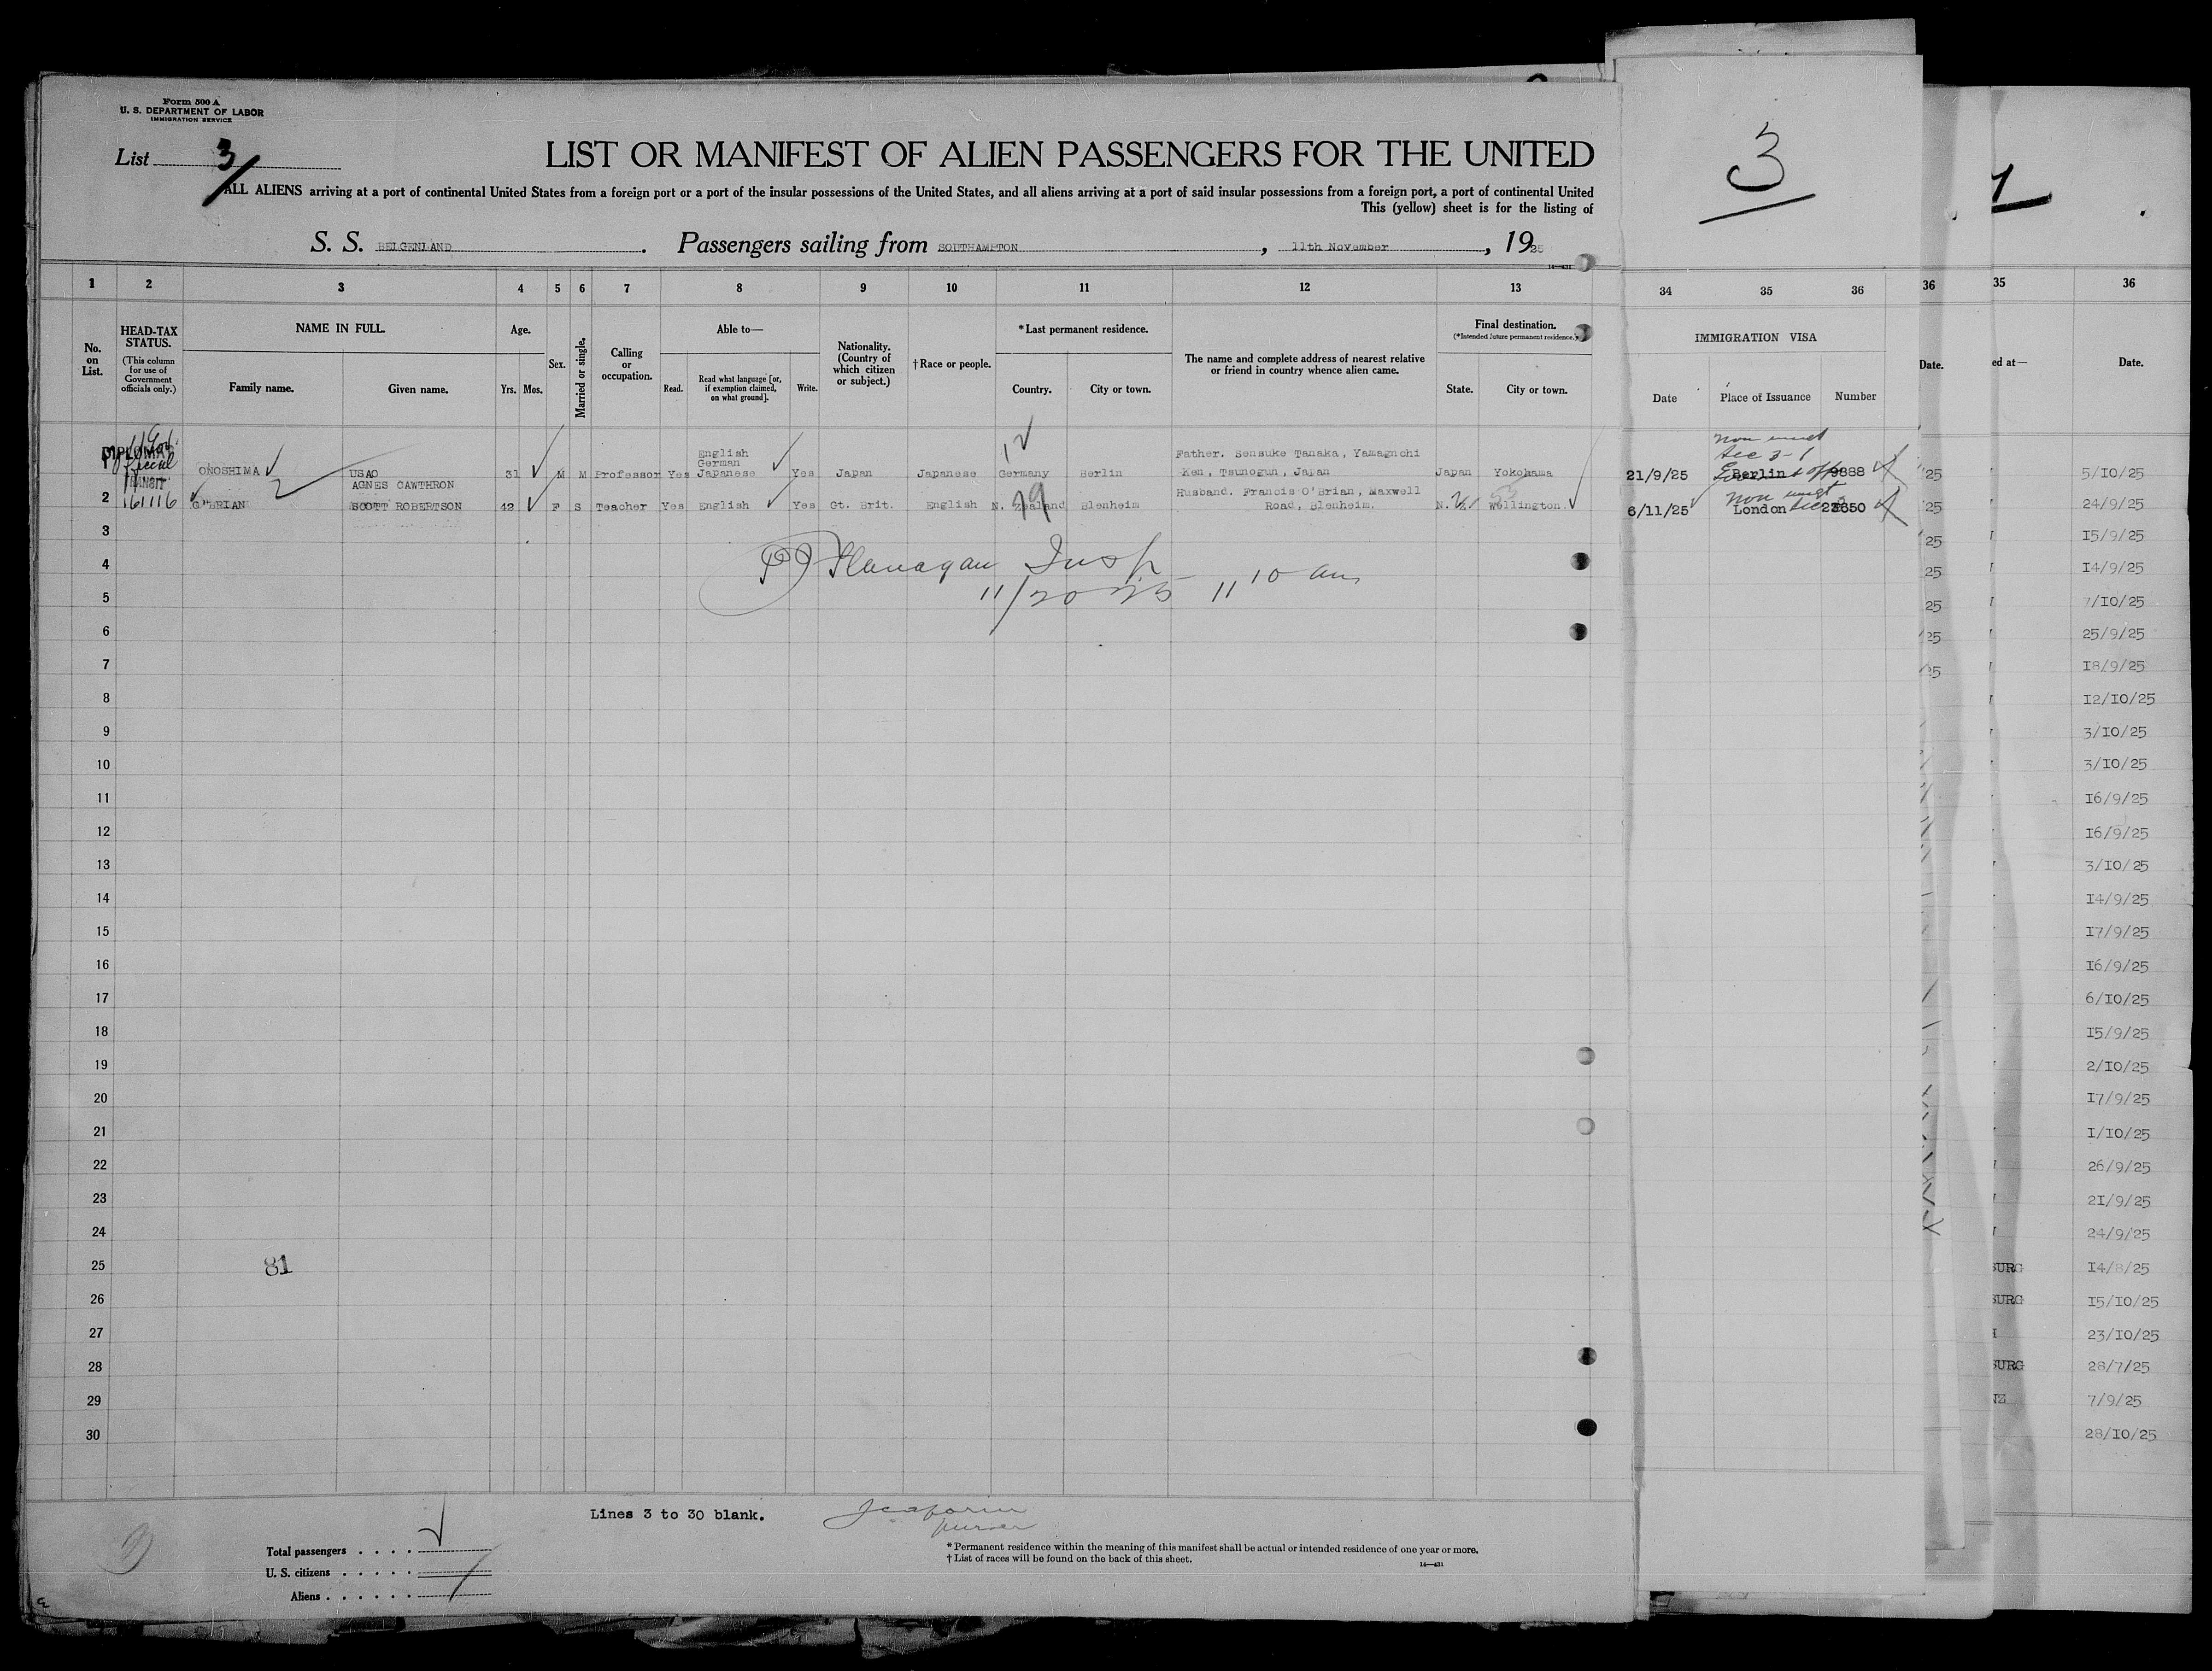 Form 500 A
U. S. DEPARTMENT OF LABOR
IMMIGRATION SERVICE
List 3
LIST OR MANIFEST OF ALIEN PASSENGERS FOR THE UNITED
ALL ALIENS arriving at a port of continental United States from a foreign port or a port of the insular possessions of the United States, and all aliens arriving at a port of said insular possessions from a foreign port, a port of continental United
This (yellow) sheet is for the listing of
S. S. BELGENLAND. Passengers sailing from SOUTHAMPTON, 11th November, 1925
14—431
1 2 3 4 5 6 7 8 9 10 11 12 13
No. on List.
HEAD-TAX STATUS.
(This column for use of Government officials only.)
NAME IN FULL.
Family name. Given name.
Age.
Yrs. Mos.
Sex.
Married or single.
Calling or occupation.
Able to—
Read. Read what language [or, if exemption claimed, on what ground]. Write.
Nationality. (Country of which citizen or subject.)
†Race or people.
*Last permanent residence.
Country. City or town.
The name and complete address of nearest relative or friend in country whence alien came.
Final destination.
(*Intended future permanent residence.)
State. City or town.
DIPLOMAT
1 ONOSHIMA USAO 31 M M Professor Yes English German Japanese Yes Japan Japanese Germany Berlin Father. Sensuke Tanaka, Yamagnchi Ken, Tsunogun, Japan Japan Yokohama
12
161116
2 O'BRIAN AGNES CAWTHRON SCOTT ROBERTSON 42 F S Teacher Yes English Yes Gt. Brit. English N. Zealand Blenheim Husband. Francis O'Brian, Maxwell Road, Blenheim. N.Z. Wellington.
19
3
4
Flanagan Insp
11/20 25 11 10 am
5
6
7
8
9
10
11
12
13
14
15
16
17
18
19
20
21
22
23
24
25
81
26
27
28
29
30
Lines 3 to 30 blank.
purser
Total passengers
U. S. citizens
Aliens
* Permanent residence within the meaning of this manifest shall be actual or intended residence of one year or more.
† List of races will be found on the back of this sheet.
14—431
3
34 35 36
IMMIGRATION VISA
Date Place of Issuance Number
non
Sec 3-1
21/9/25 Berlin 9888
non
6/11/25 London
36
Date.
25
25
25
25
25
25
25
1
35 36
ed at— Date.
5/10/25
24/9/25
15/9/25
14/9/25
7/10/25
25/9/25
18/9/25
12/10/25
3/10/25
3/10/25
16/9/25
16/9/25
3/10/25
14/9/25
17/9/25
16/9/25
6/10/25
15/9/25
2/10/25
17/9/25
1/10/25
26/9/25
21/9/25
24/9/25
BURG 14/8/25
BURG 15/10/25
23/10/25
BURG 28/7/25
NZ 7/9/25
28/10/25